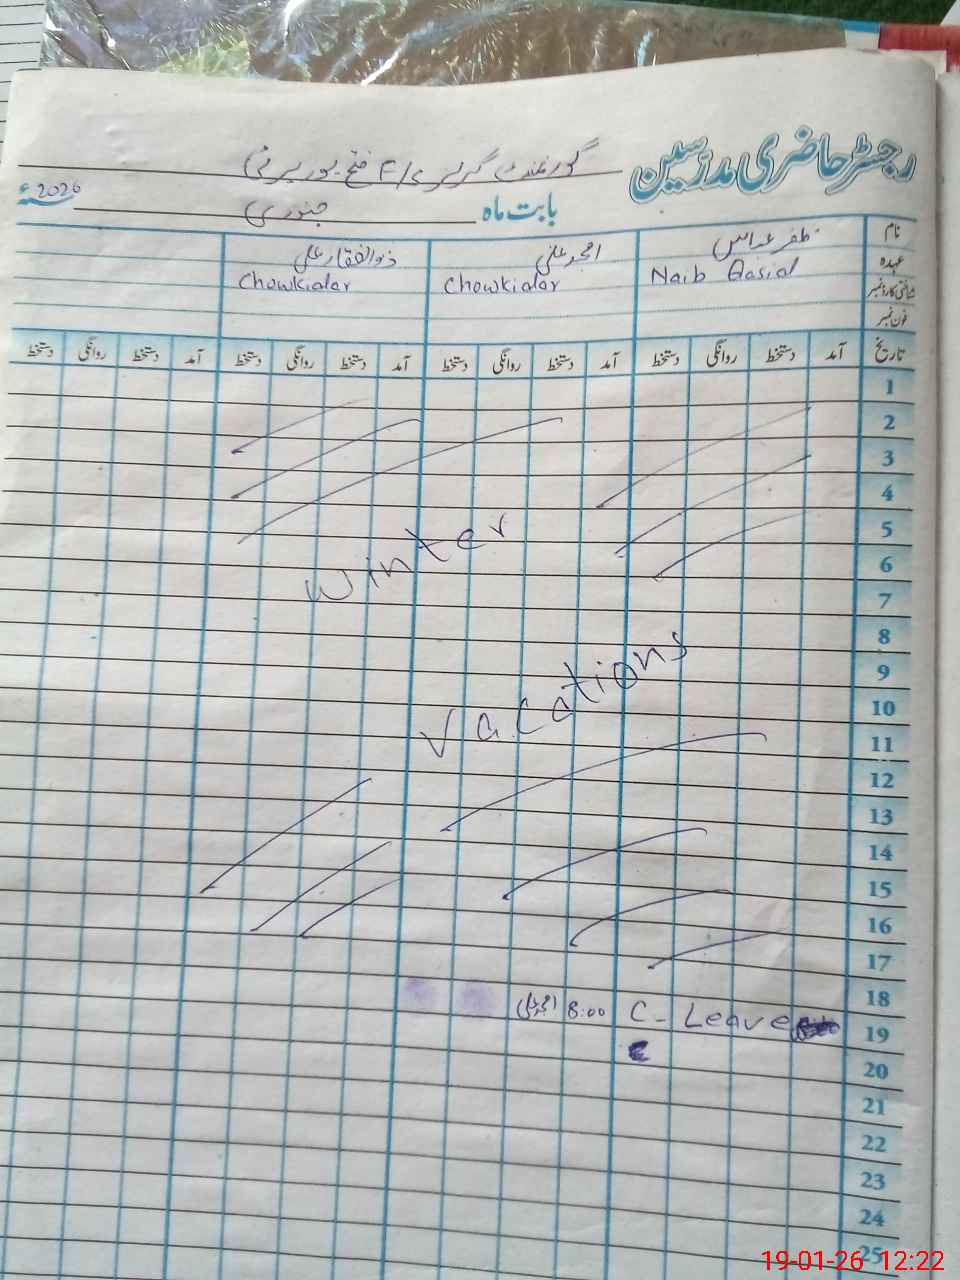 رجسٹر حاضری مدرسین گورنمنٹ گرلز E/S فتح پور
بابت ماہ جنوری 2026ء
نام ظفر عباس امجد علی ذوالفقار علی
عہدہ Naib Qasid Chowkidar Chowkidar
شناختی کارڈ نمبر
فون نمبر
تاریخ آمد دستخط روانگی دستخط آمد دستخط روانگی دستخط آمد دستخط روانگی دستخط آمد دستخط روانگی دستخط
1
2
3
4
5
6
7
8
9
10
11
12
13
14
15
16
17
18
19
20
21
22
23
24
25
Winter
Vacations
C- Leave
8:00 امجد علی
19-01-26 12:22